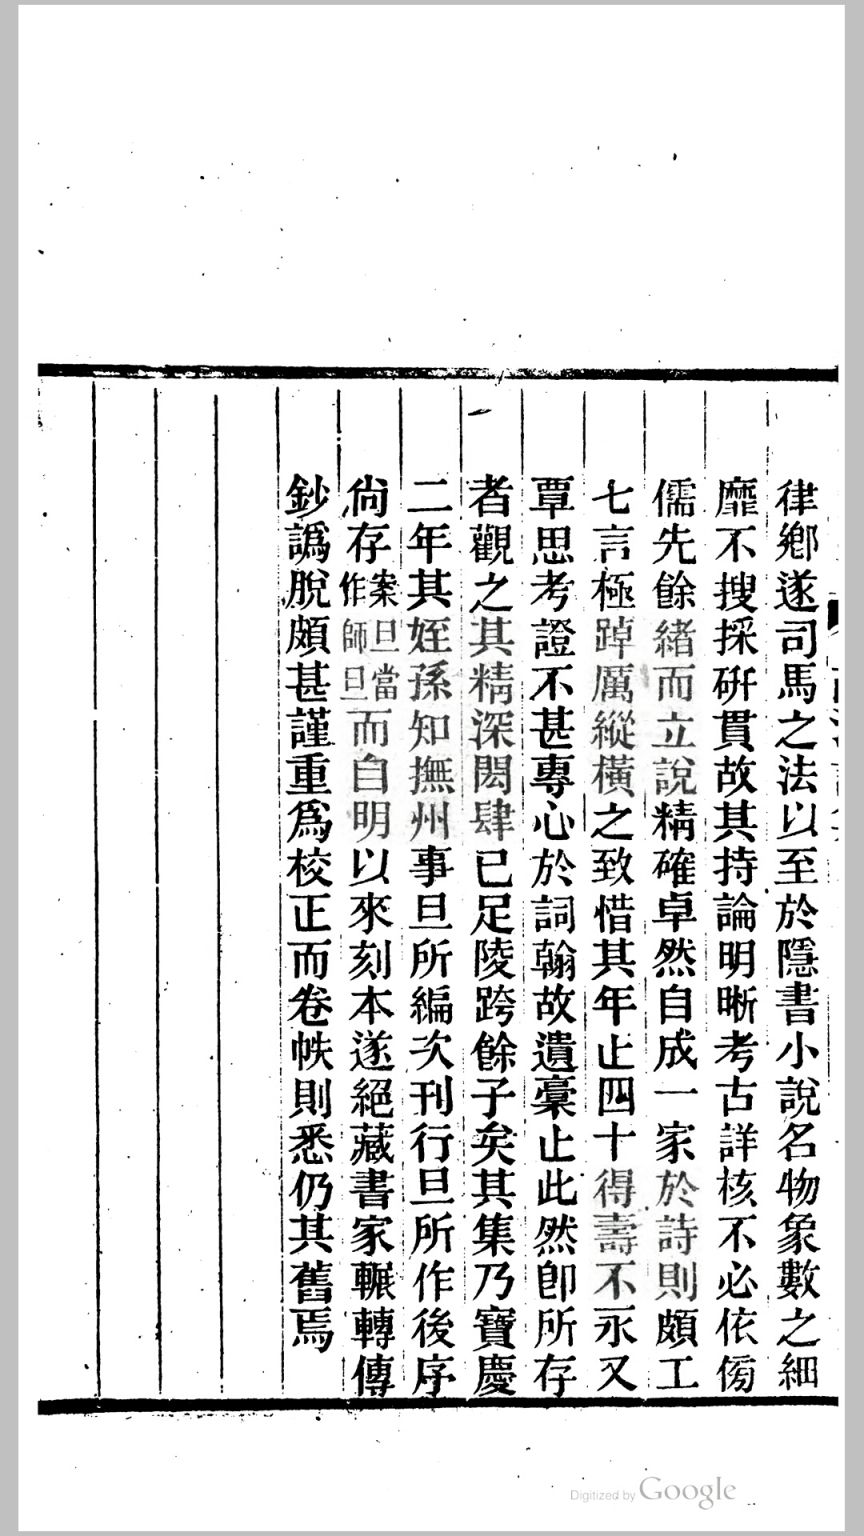 律鄉遂司馬之法以至於隱書小說名物象數之細
靡不搜採硏貫故其持論明晰考古詳核不必依傍
儒先餘緒而立說精確卓然自成一家於詩則頗工
七言極踔厲縱橫之致惜其年止四十得壽不永又
覃思考證不甚專心於詞翰故遺稾止此然卽所存
者觀之其精深閎肆已足陵跨餘子矣其集乃寶慶
二年其姪孫知撫州事旦所編次刊行旦所作後序
尙存案旦當作師旦而自明以來刻本遂絕藏書家輾轉傳
鈔譌脫頗甚謹重爲校正而卷帙則悉仍其舊焉
Digitized by Google